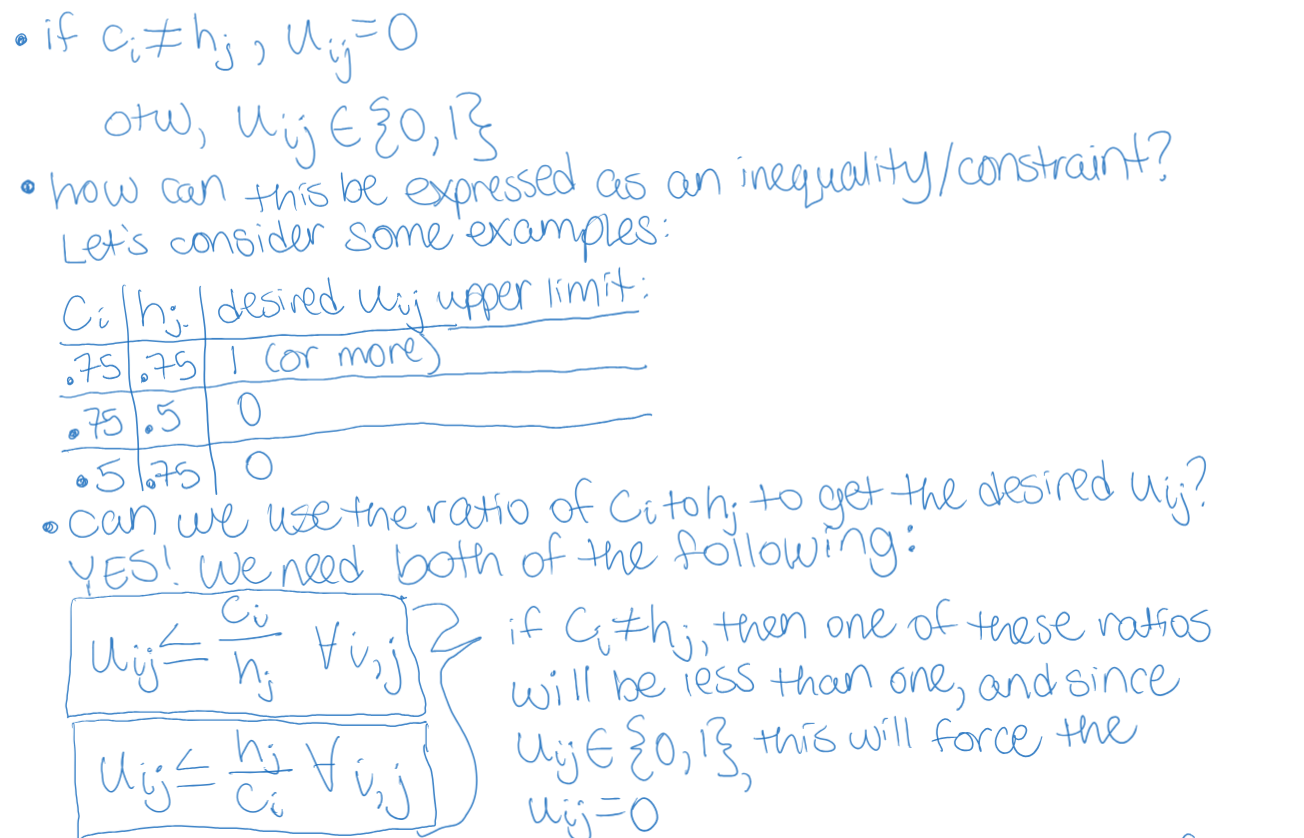 • if cᵢ≠hⱼ, uᵢⱼ=0
otw, uᵢⱼ∈{0,1}
• how can this be expressed as an inequality/constraint?
Let's consider some examples:
cᵢ | hⱼ | desired uᵢⱼ upper limit:
.75 | .75 | 1 (or more)
.75 | .5 | 0
.5 | .75 | 0
• can we use the ratio of cᵢ to hⱼ to get the desired uᵢⱼ?
YES! We need both of the following:
uᵢⱼ ≤ cᵢ/hⱼ ∀i,j
uᵢⱼ ≤ hⱼ/cᵢ ∀i,j
if cᵢ≠hⱼ, then one of these ratios
will be less than one, and since
uᵢⱼ∈{0,1}, this will force the
uᵢⱼ=0